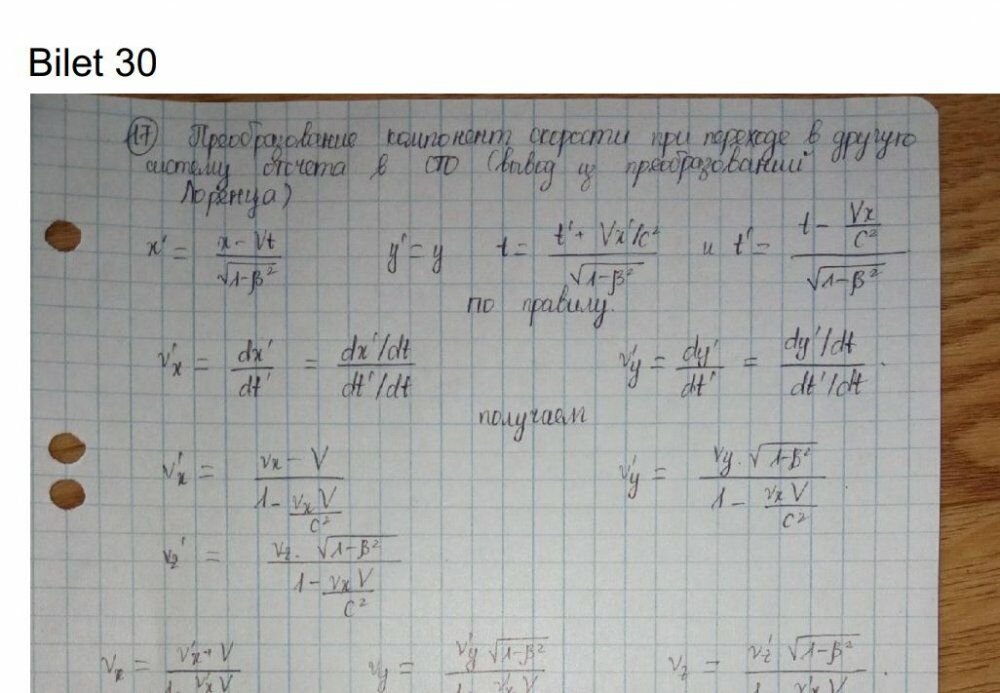 Bilet 30
17 Преобразование компонент скорости при переходе в другую
систему отсчета в СТО (вывод из преобразований
Лоренца)
x' = (x - Vt)/√(1-β²) y' = y t = (t' + Vx'/c²)/√(1-β²) и t' = (t - Vx/c²)/√(1-β²)
по правилу.
v'x = dx'/dt' = (dx'/dt)/(dt'/dt) v'y = dy'/dt' = (dy'/dt)/(dt'/dt).
получаем
v'x = (vx - V)/(1 - vxV/c²) v'y = (vy · √(1-β²))/(1 - vxV/c²)
vz' = (vz · √(1-β²))/(1 - vxV/c²)
vx = (v'x + V)/ vy = (v'y √(1-β²))/ vz = (vz' √(1-β²))/